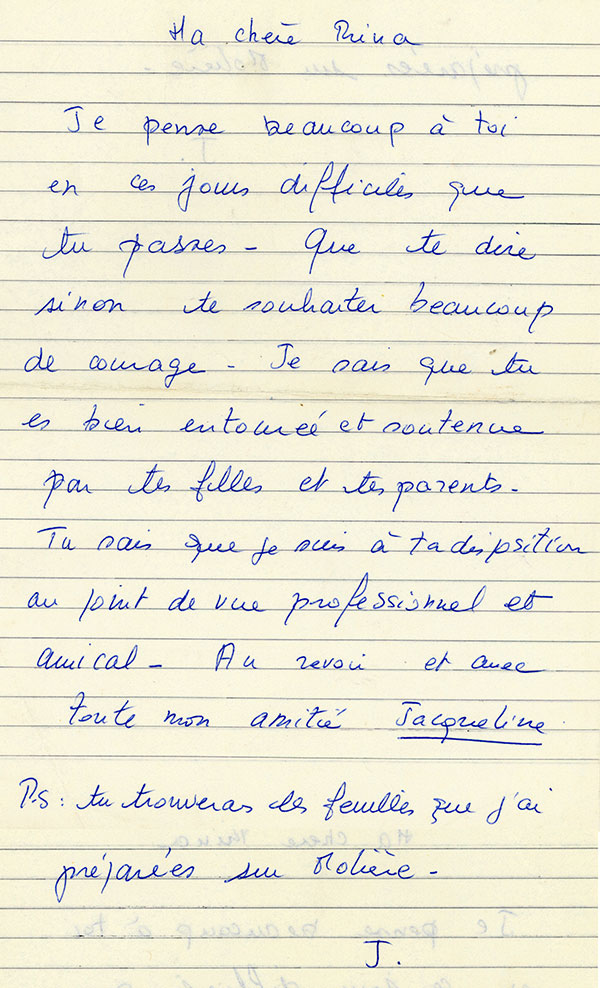 Ma chère Mina
Je pense beaucoup à toi
en ces jours difficiles que
tu passes - Que te dire
sinon te souhaiter beaucoup
de courage - Je sais que tu
es bien entourée et soutenue
par tes filles et tes parents -
Tu sais que je suis à ta disposition
au point de vue professionnel et
amical - Au revoir et avec
toute mon amitié Jacqueline
P.S : tu trouveras les feuilles que j'ai
préparées sur Molière -
J.